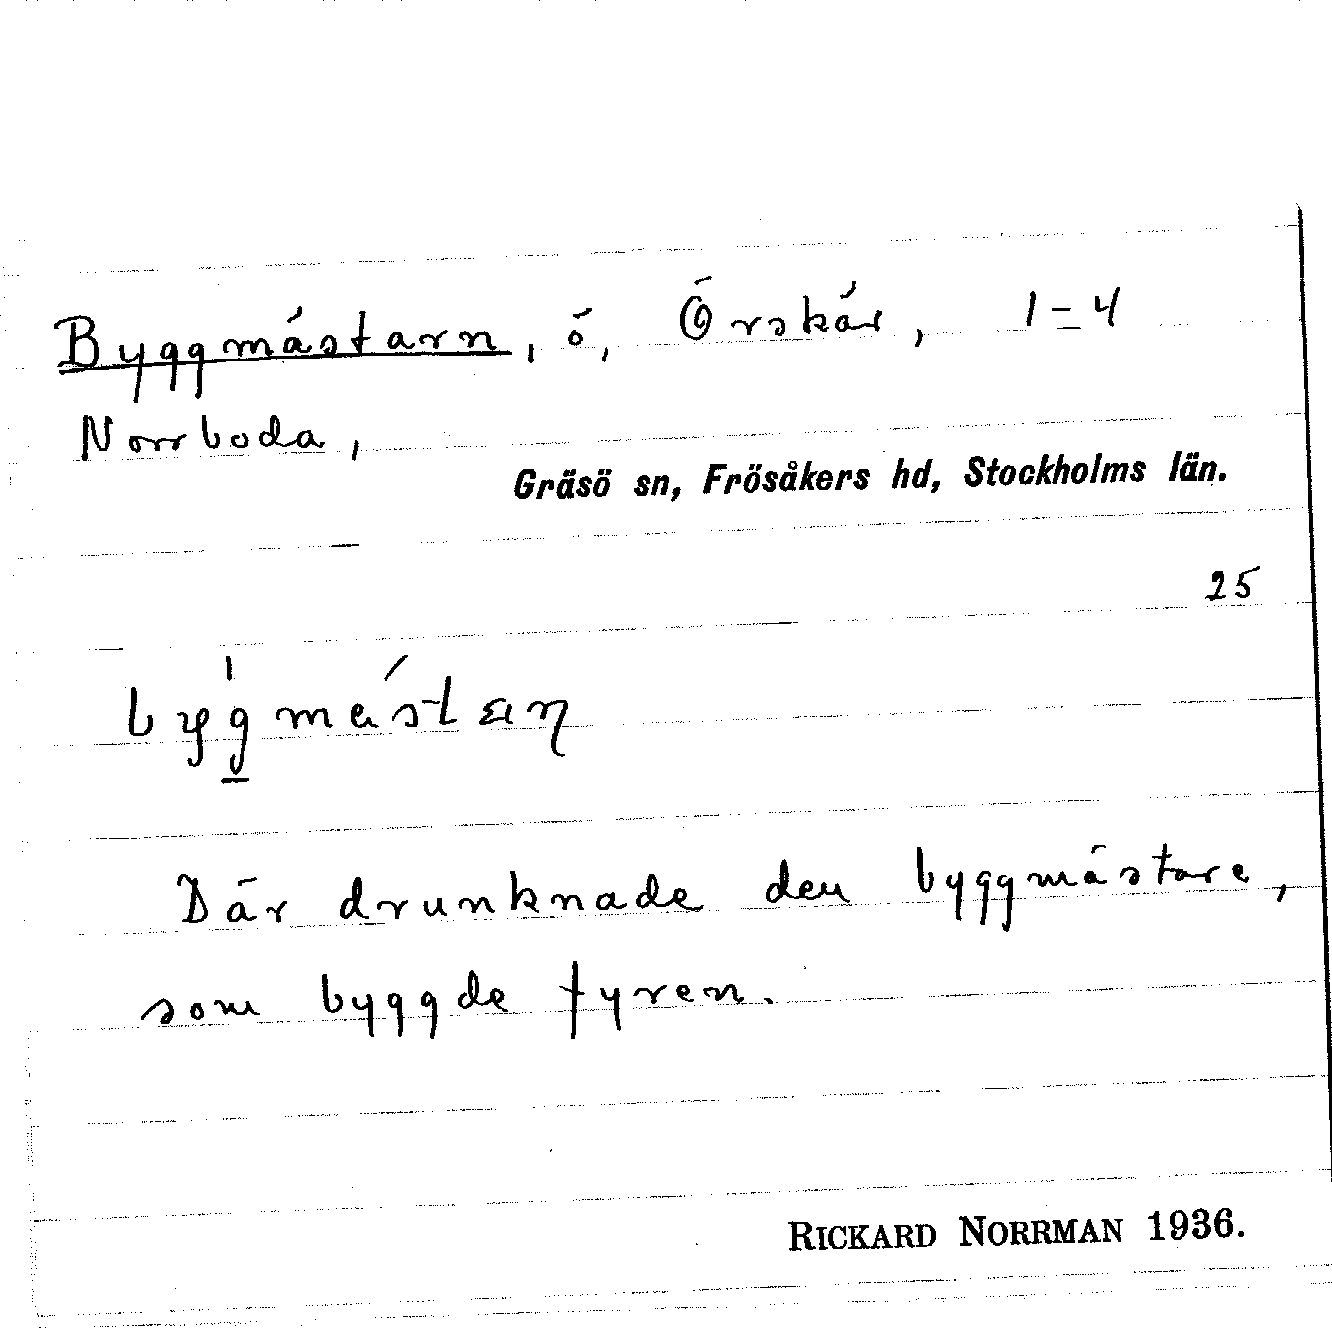 Byggmästarn, ö, Örskär, 1-4
Norrboda,
Gräsö sn, Frösåkers hd, Stockholms län.
25
Där drunknade den byggmästare,
som byggde fyren.
RICKARD NORRMAN 1936.